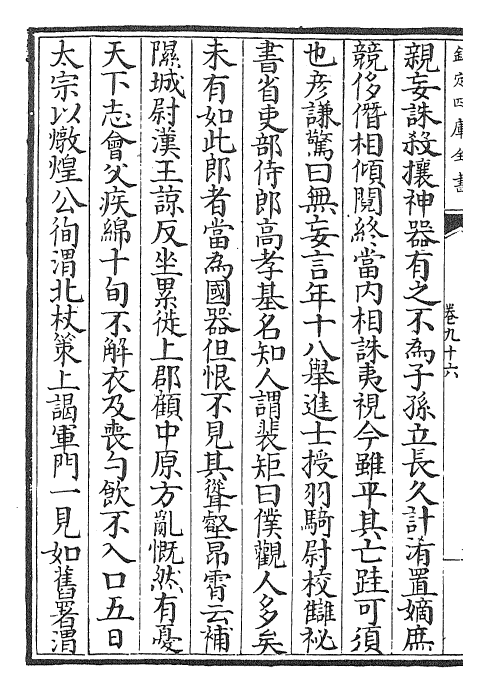 欽定四庫全書
卷九十六
親妄誅殺攘神器有之不為子孫立長久計淆置嫡庶
競侈僭相傾鬩終當内相誅夷視今雖平其亡跬可須
也彦謙驚曰無妄言年十八舉進士授羽騎尉校讎祕
書省吏部侍郎高孝基名知人謂裴矩曰僕觀人多矣
未有如此郎者當為國器但恨不見其聳壑昂霄云補
隰城尉漢王諒反坐累徙上郡顧中原方亂慨然有憂
天下志會父疾綿十旬不解衣及喪勺飲不入口五日
太宗以燉煌公徇渭北杖策上謁軍門一見如舊署渭